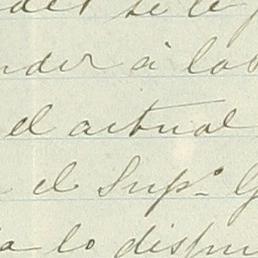 se le
nder á los
el actual
el Sup.º G
a lo dispu